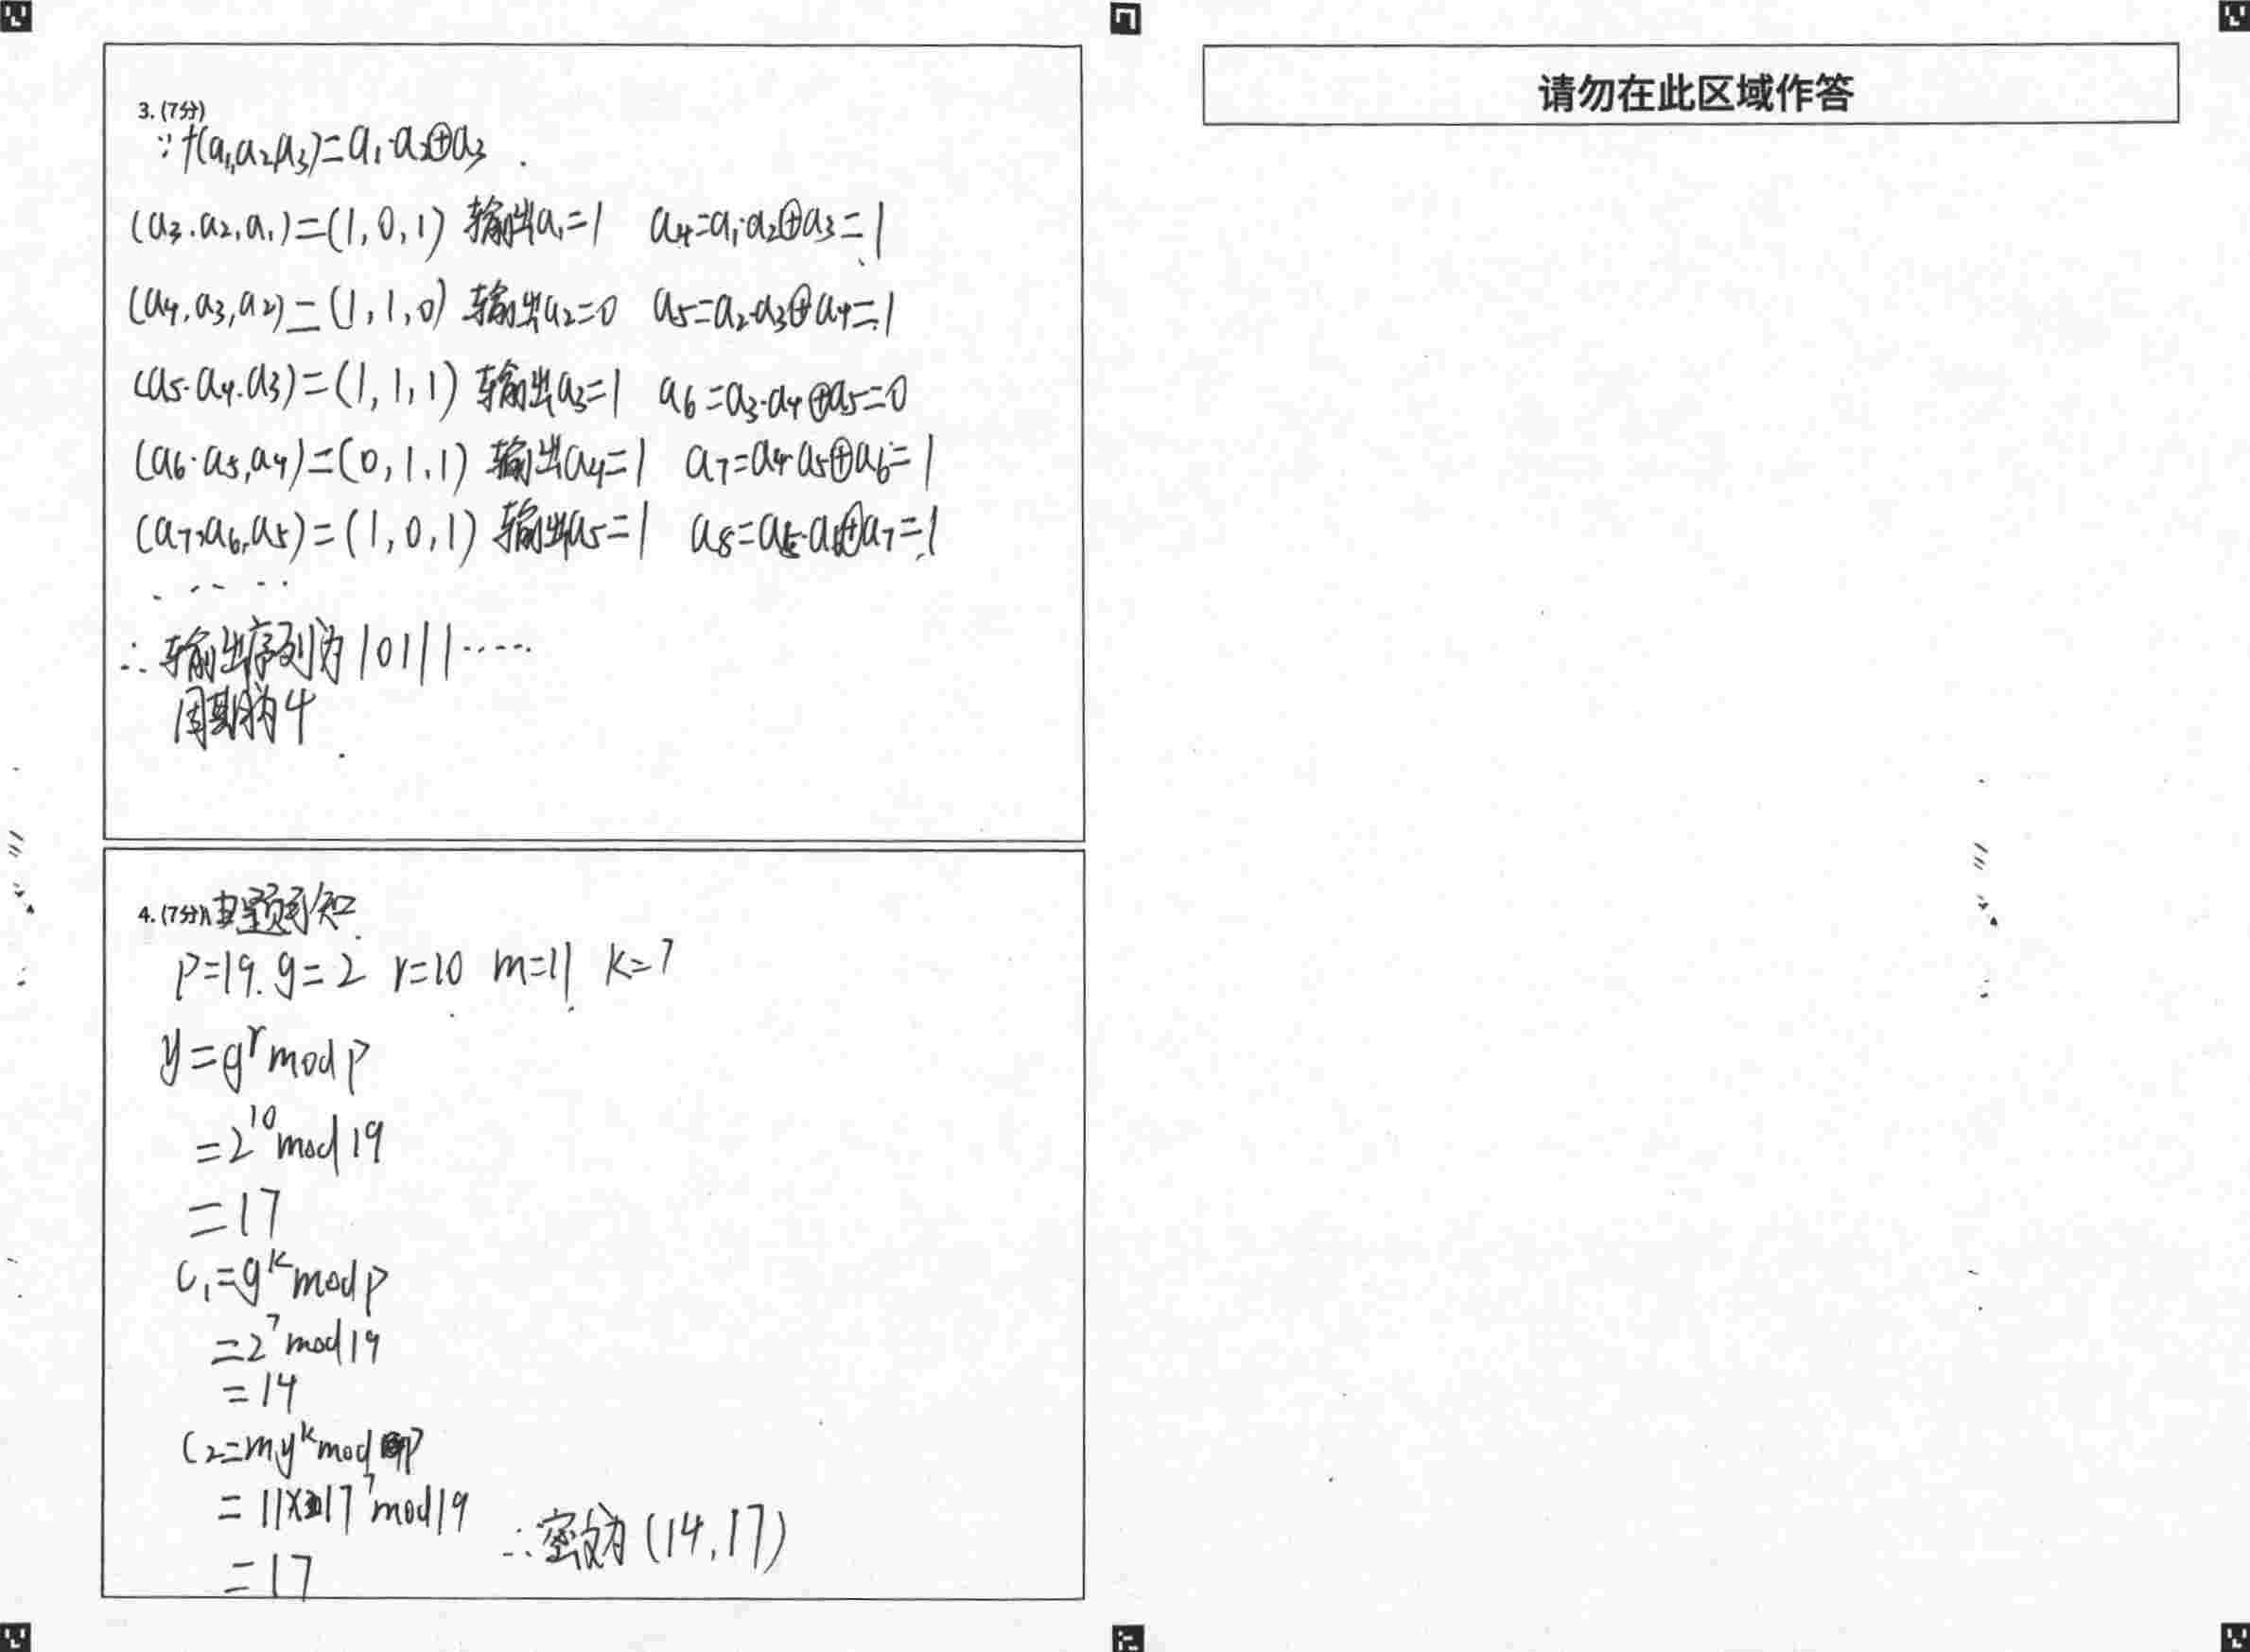 请勿在此区域作答
3. (7分)
∵ f(a₁,a₂,a₃)=a₁·a₂⊕a₃
(a₃,a₂,a₁)=(1,0,1) 输出a₁=1 a₄=a₁·a₂⊕a₃=1
(a₄,a₃,a₂)=(1,1,0) 输出a₂=0 a₅=a₂·a₃⊕a₄=1
(a₅,a₄,a₃)=(1,1,1) 输出a₃=1 a₆=a₃·a₄⊕a₅=0
(a₆,a₅,a₄)=(0,1,1) 输出a₄=1 a₇=a₄·a₅⊕a₆=1
(a₇,a₆,a₅)=(1,0,1) 输出a₅=1 a₈=a₅·a₆⊕a₇=1
·····
∴输出序列为10111·····
周期为4
4. (7分)由题可知
P=19. g=2 r=10 m=11 k=7
y=gʳmodp
=2¹⁰mod19
=17
C₁=gᵏmodp
=2⁷mod19
=14
C₂=myᵏmodp
=11×17⁷mod19
=17
∴密文为(14,17)